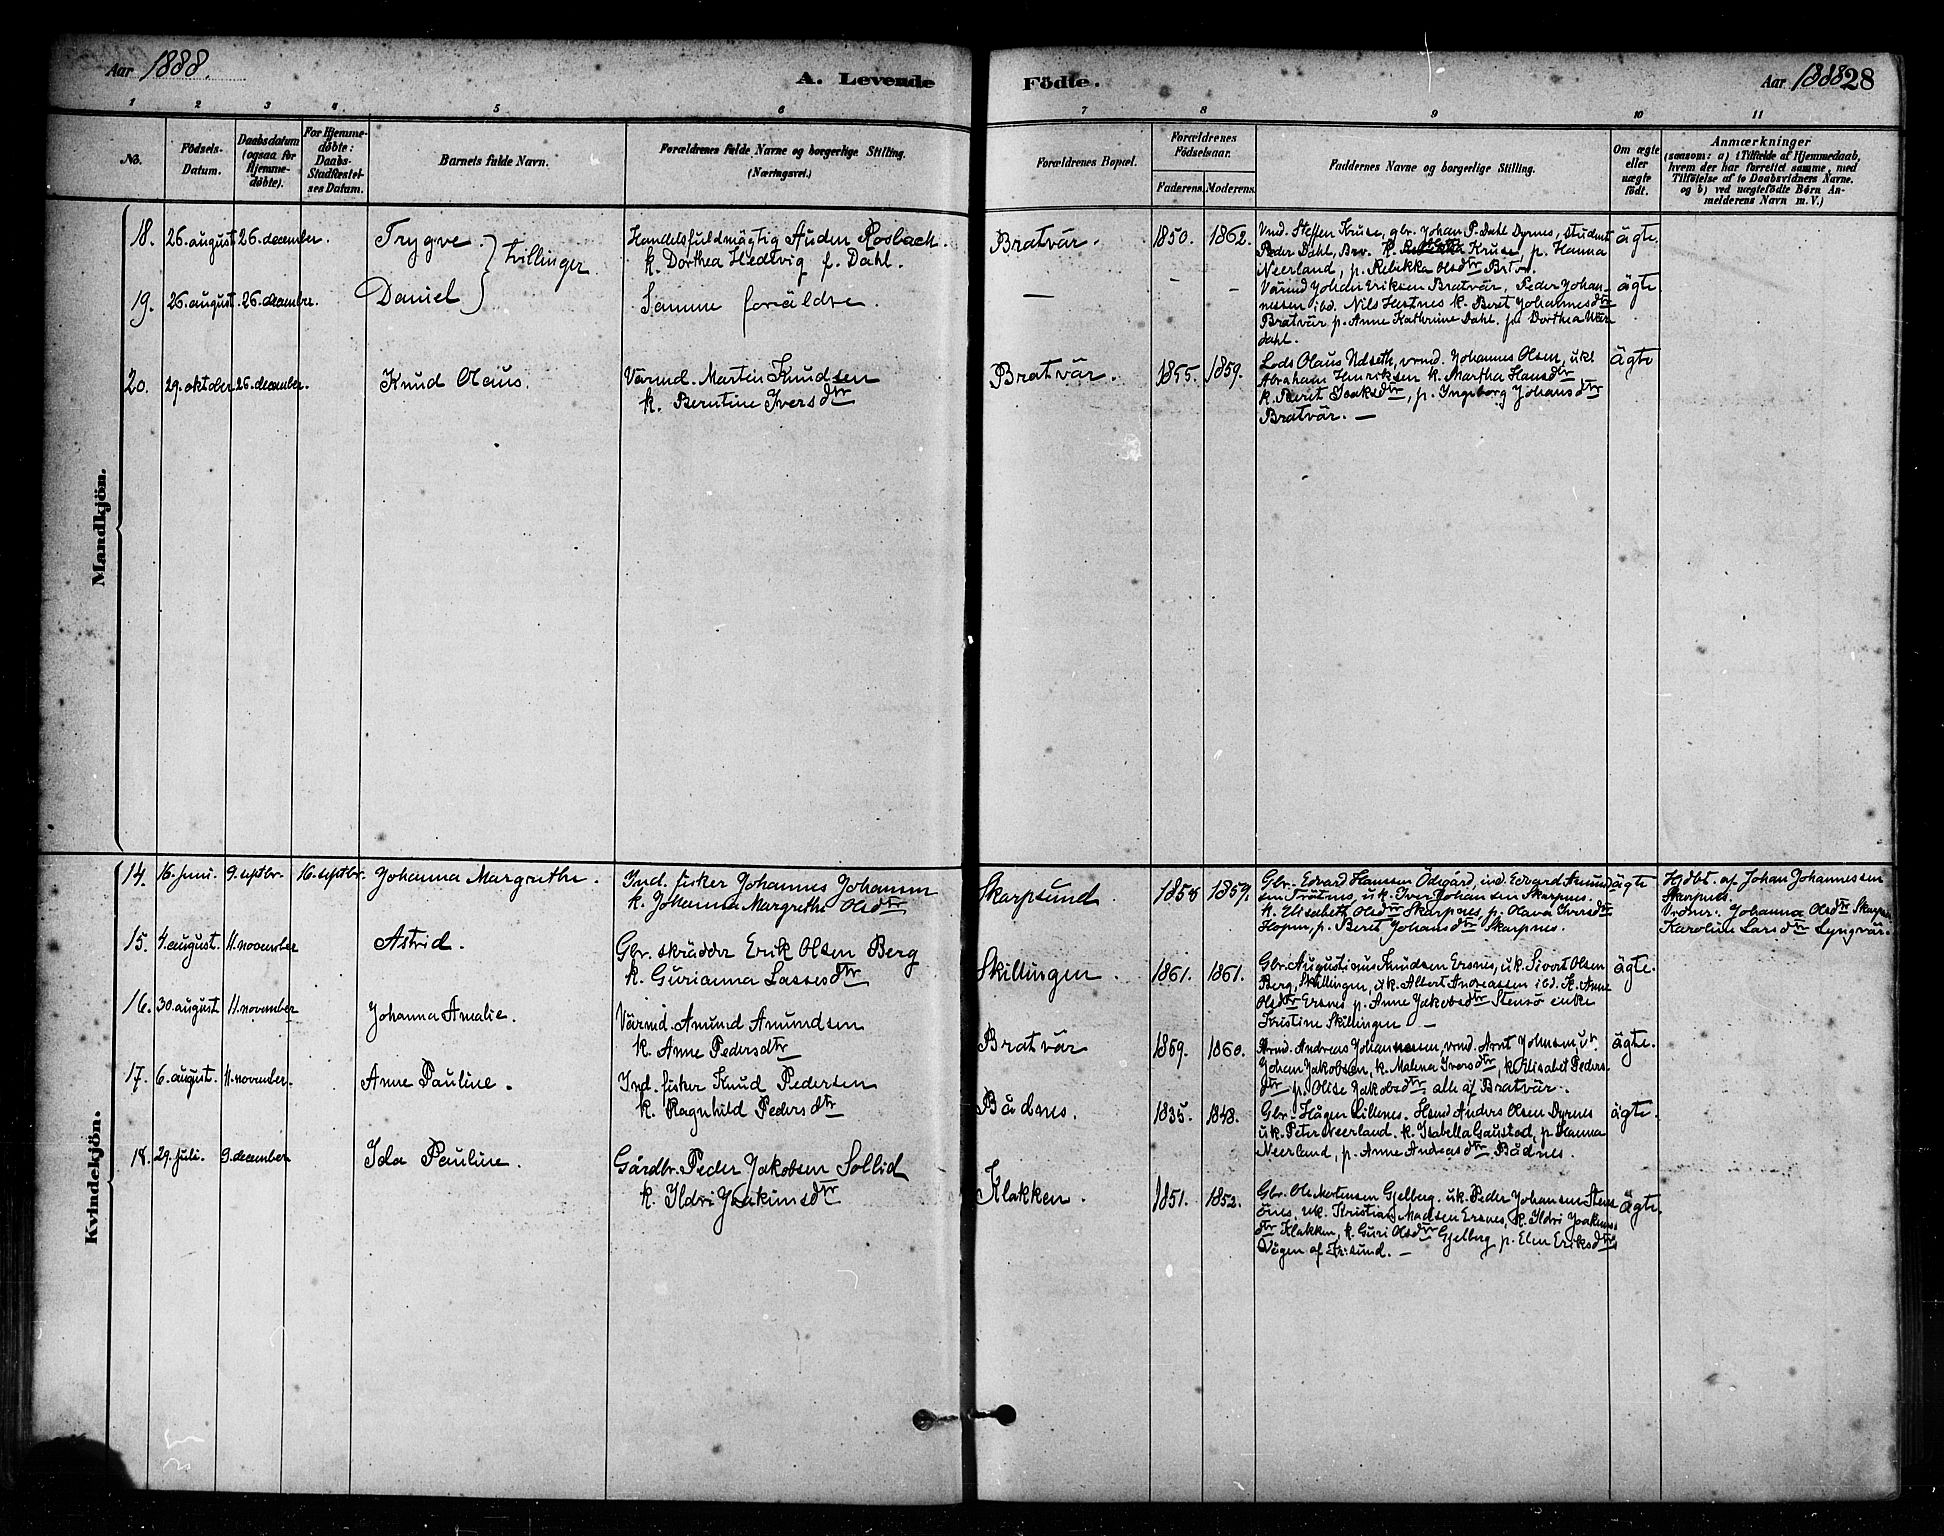 Aar 1888.
A. Levende
Födte.
Aar 1888 28
1 2 3 4 5 6 7 8 9 10 11
No.
Födsels-
Datum.
Daabsdatum
(ogsaa for
Hjemme-
døbte).
For Hjemme-
døbte:
Daabs-
Stadfæstel-
ses Datum.
Barnets fulde Navn.
Forældrenes fulde Navne og borgerlige Stilling.
(Næringsvei.)
Forældrenes Bopæl.
Forældrenes
Födselsaar.
Faderens. Moderens.
Faddernes Navne og borgerlige Stilling.
Om ægte
eller
uægte
födt.
Anmærkninger
(saasom: a) i Tilfælde af Hjemmedaab,
hvem der har forrettet samme, med
Tilföielse af to Daabsvidners Navne.
og b) ved uægtefödte Börn An-
melderens Navn m. V.)
Mandkjön.
18. 26. august 26. december. Trygve. } tvillinger.
Handelsfuldmägtig Auden Rosbach.
k. Dorthea Hedevig f. Dahl.
Bratvär. 1850. 1862.
Vmd. Steffen Kruse, gbr. Johan P. Dahl Dyrnes, student
Peder Dahl, Brv. k. Kruse, p. Hanna
Neerland, p. Rebekka Olsdtr
ägte.
19. 26. august. 26. december. Daniel
Samme foräldre.
— - -
Värmd Johan Eriksen Bratvär, Peder Johan-
nessen ibd. Nils Hestnes k. Beret Johannesdtr
Bratvär p. Anne Kathrine Dahl. p. Dorthea
dahl.
ägte
20. 29. oktober. 26. december. Knud Olaus.
Värmd. Martin Knudsen
k. Berntine Iversdtr
Bratvär. 1855. 1859.
Lods Olaus Udseth, vrmd. Johannes Olsen, ukl
Abraham Henriksen k. Martha Hansdtr
k. Berit Isaksdtr, p. Ingeborg Johansdtr
Bratvär. —
ägte
Kvindekjön.
14. 16. juni. 9. septbr. 16. septbr. Johanna Margrethe.
Ind. fisker Johannes Johansen
k. Johanna Margrethe Olsdtr
Skarpsund. 1858 1859.
Gbr. Edvard Hansen Ödegård, ind. Edvard Amund-
sen Trötnes, uk. Iver Johansen Skarpnes.
k. Elisabeth Olsdtr Skarpnes, p. Olava Iversdtr
Hopen, p. Berit Johansdtr Skarpnes.
ägte
Hjdbt. af Johan Johannessen
Skarpnes.
Vidner: Johanna Olsdtr Skarpnes
Karoline Larsdtr Lyngvär.
15. 4. august. 11. november Astrid.
Gbr. skrädder Erik Olsen Berg
k. Gurianna Lassesdtr
Skillingen. 1861. 1861.
Gbr. Augustinus Knudsen Ersnes, uk. Sivert Olsen
Berg, Skillingen, uk. Albert Andreassen ibd. k. Anne
Olsdtr Ersnes p. Anne Jakobsdtr Stensö enke
Kristine Skillingen —
ägte.
16. 30. august 11. november Johanna Amalie.
Värmd. Amund Amundsen
k. Anne Pedersdtr
Bratvär 1859. 1860.
Vrmd. Andreas Johannessen, vrmd. Arnt Johnsen, uk
Johan Jakobsen, k. Malena Iversdtr, k. Elisabet Peders-
dtr p. Olise Jakobsdtr alle af Bratvär.
ägte.
17. 6. august. 11. november. Anne Pauline.
Ind. fisker Knud Pedersen
k. Ragnhild Pedersdtr
Bådnes. 1835. 1848.
Gbr. Hågen Lillenes. Hsmd Anders Olsen Dyrnes
uk. Peter Neerland. k. Isabella Gaustad, p. Hanna
Neerland, p. Anne Andreasdtr Bådnes.
ägte.
18. 29. juli. 9. december Ida Pauline.
Gårdbr. Peder Jakobsen Sollid
k. Ildri Joakimsdtr
Klakken. 1851. 1852.
Gbr. Ole Mortensen Gjelberg. uk. Peder Johansen Stens-
önes, uk. Kristian Madsen Ersnes, k. Ildri Joakims-
dtr Klakken, k. Guri Olsdtr Gjelberg p. Elen Eriksdtr
Vågen af Edisund. —
ägte.